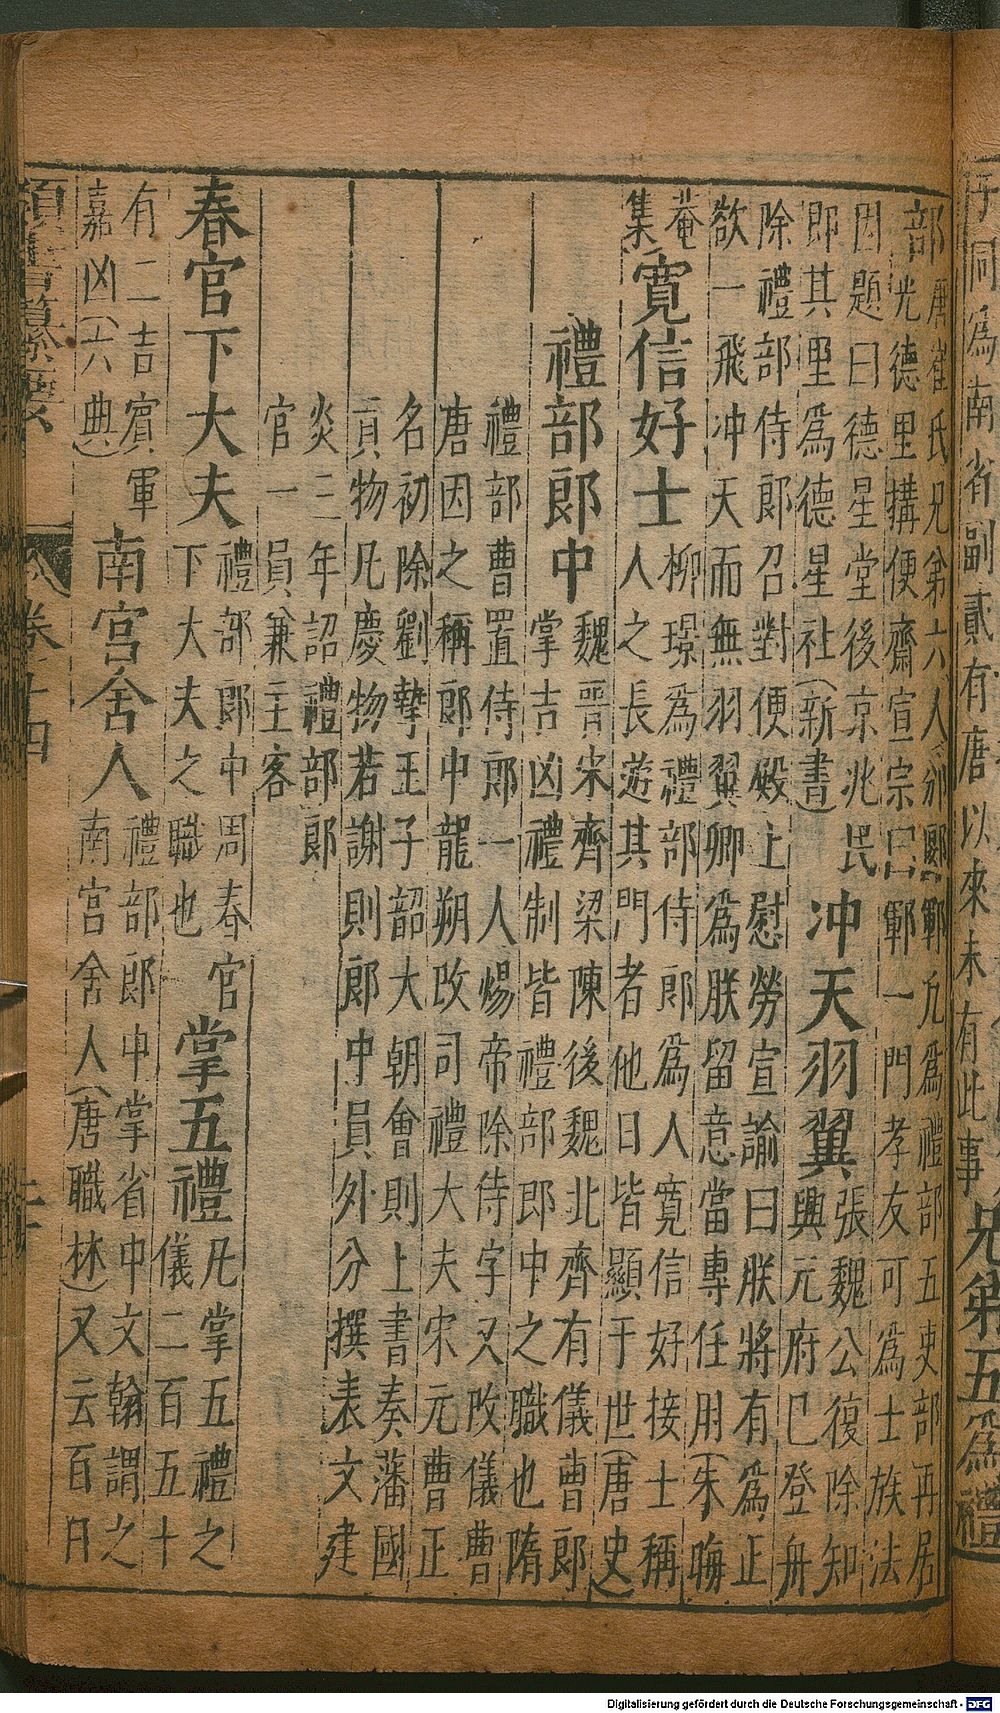 部唐崔氏兄弟六人邠郾鄲九爲禮部五吏部再居
光德里搆便齋宣宗曰鄲一門孝友可爲士族法
因題曰德星堂後京兆民
即其里爲德星社(新書)
冲天羽翼
張魏公復除知
興元府巳登舟
除禮部侍郎召對便殿上慰勞宣諭曰朕將有爲正
欲一飛冲天而無羽翼卿爲朕留意當專任用(朱晦
菴
集)
寛信好士
柳璟爲禮部侍郎爲人寛信好接士稱
人之長遊其門者他日皆顯于世(唐史)
禮部郎中
魏晋宋齊梁陳後魏北齊有儀曹郎
掌吉凶禮制皆禮部郎中之職也隋
禮部曹置侍郎一人煬帝除侍字又改儀曹
唐因之稱郎中龍朔改司禮大夫宋元曹正
名初除劉摯王子韶大朝會則上書奏藩國
貢物凡慶物若謝則郎中員外分撰表文建
炎三年詔禮部郎
官一員兼主客
春官下大夫
禮部郎中周春官
下大夫之職也
掌五禮
凡掌五禮之
儀二百五十
有二吉賓軍
嘉凶(六典)
南宫舍人
禮部郎中掌省中文翰謂之
南宫舍人(唐職林)又云百日
卷十四
子同爲南省副貳有唐以來未有此事 兄弟五爲禮
Digitalisierung gefördert durch die Deutsche Forschungsgemeinschaft - DFG